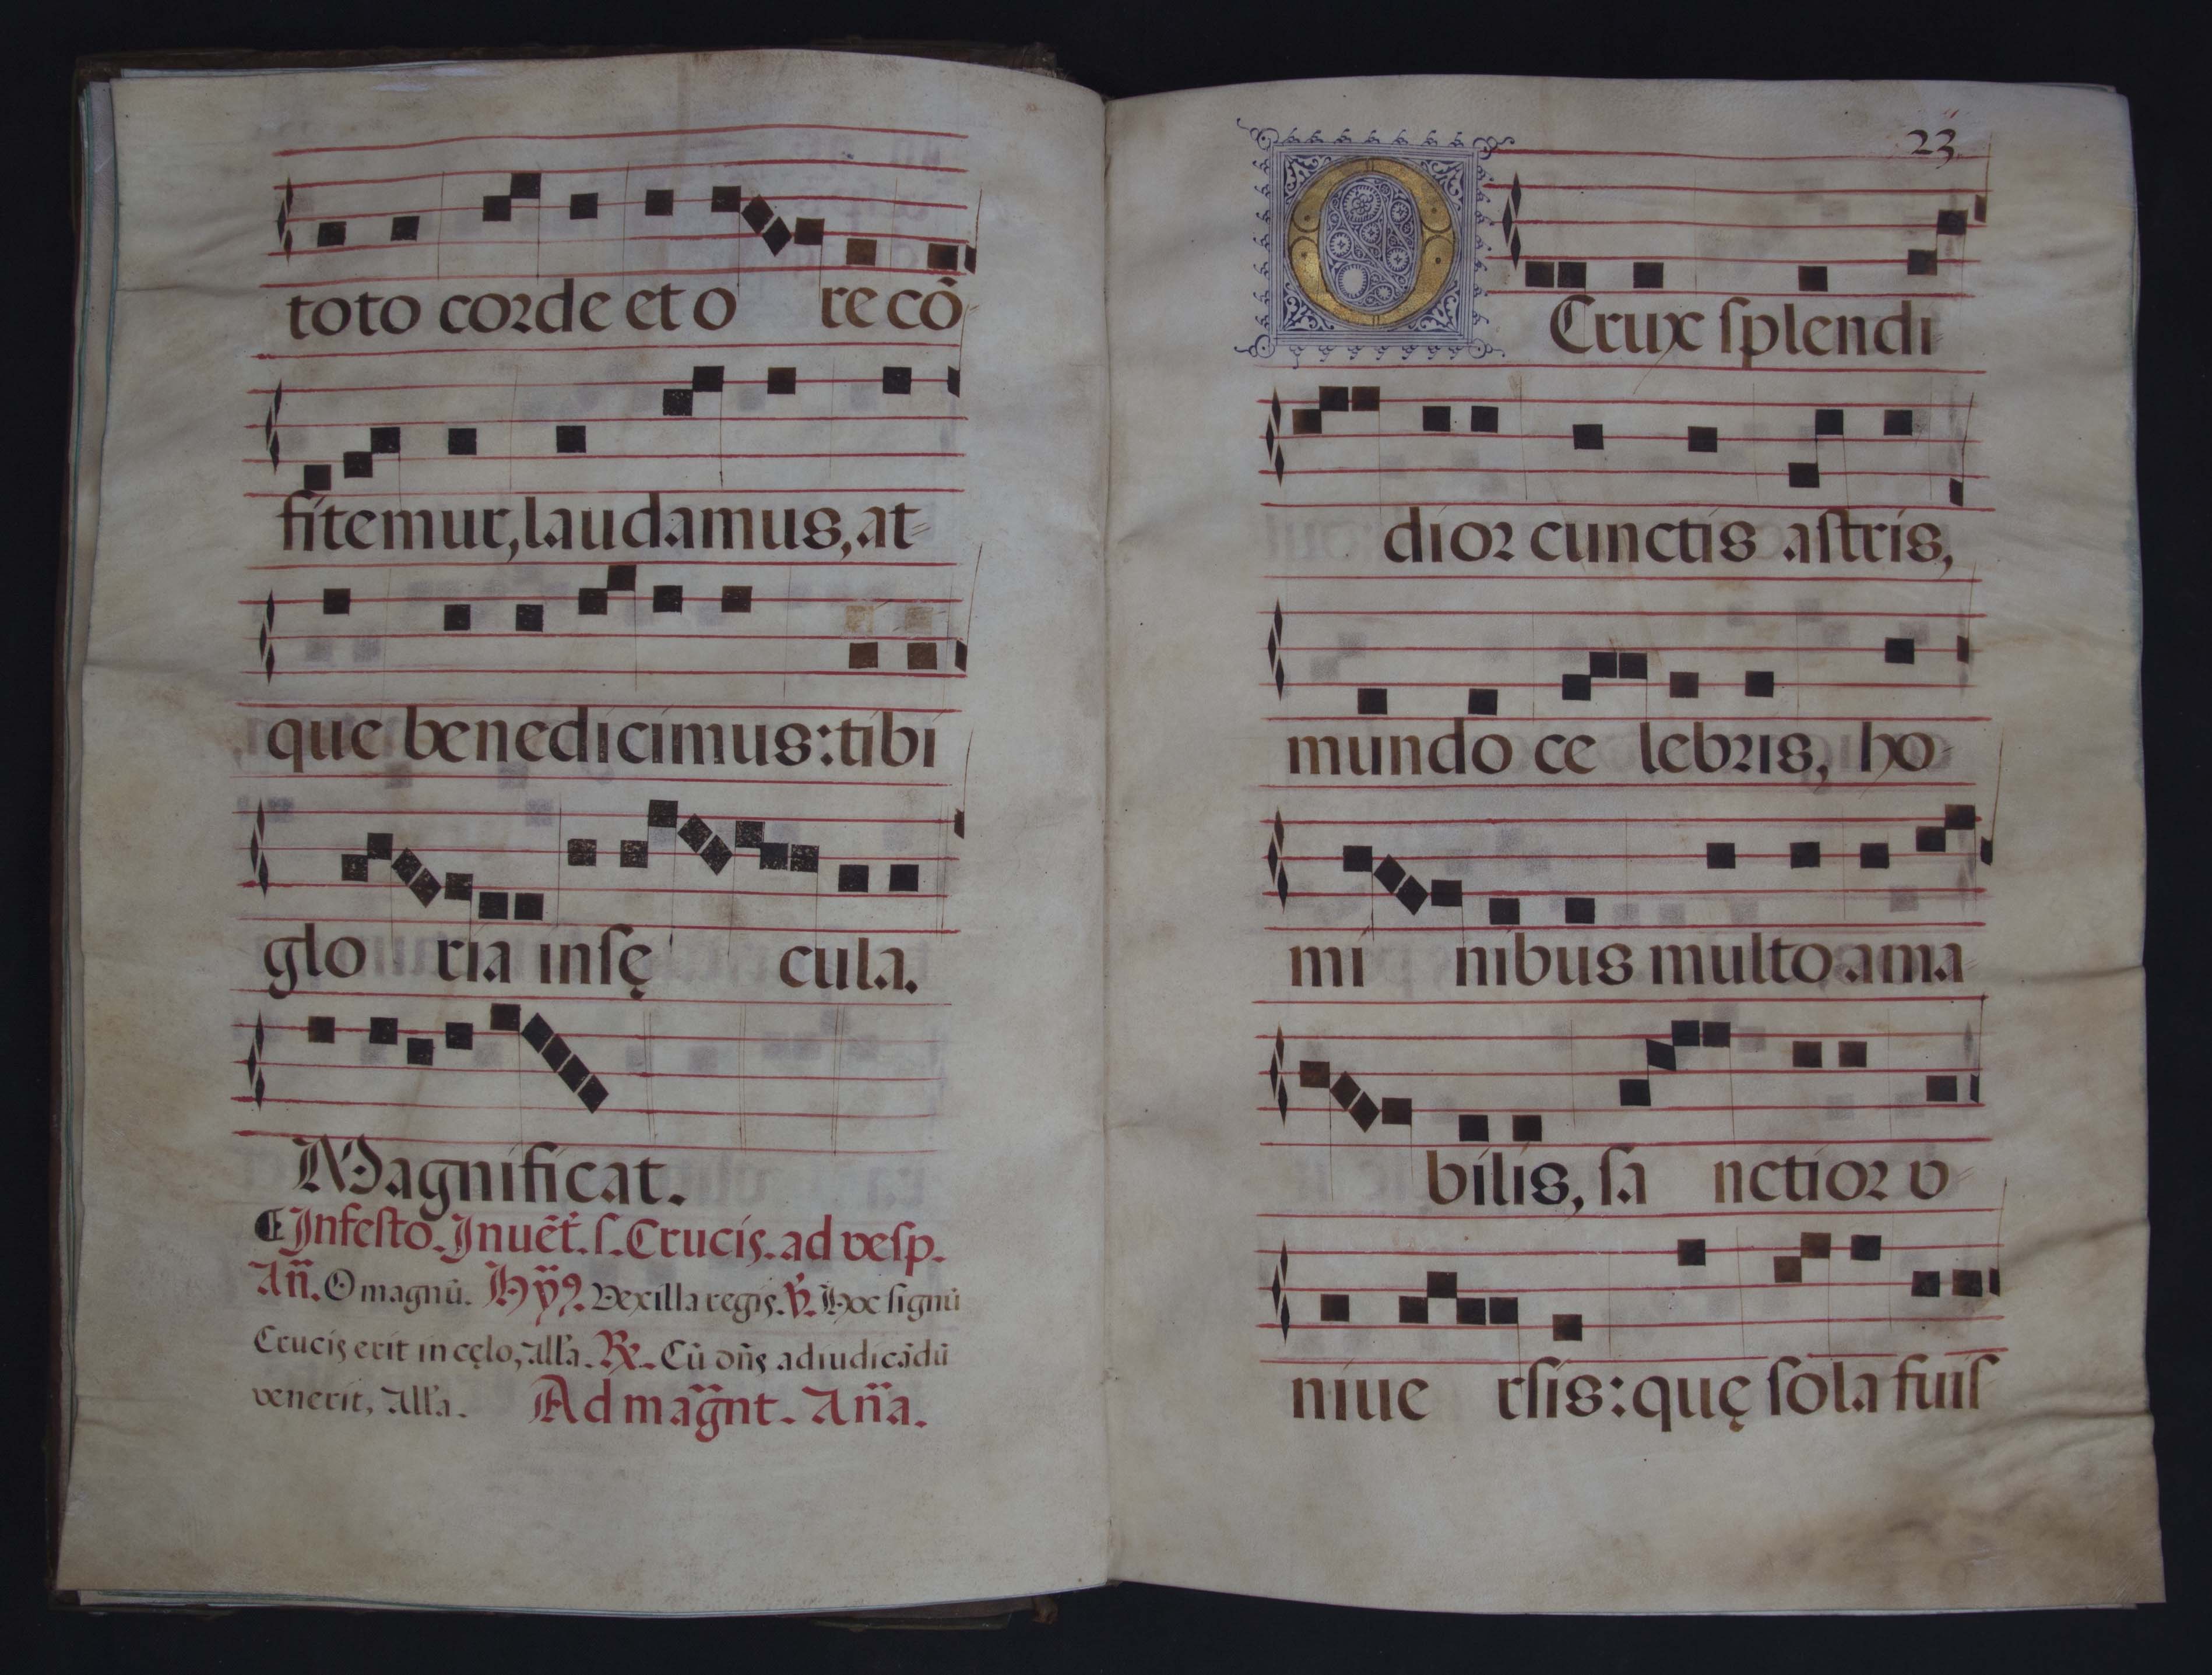 toto corde et o re cō
fitemur, laudamus, at=
que benedicimus: tibi
glo ria in sę cula.
Magnificat.
In festo. Inuēt. s. Crucis. ad vesp.
Añ. O magnū. Hy̅9. Vexilla regis. ℣. Hoc signū
Crucis erit in cęlo, all'a. ℟. Cū dn̄s ad iudicādū
venerit, all'a. Ad mag̃nt. Añ̃a.
23
O Crux splendi=
dior cunctis astris,
mundo ce lebris, ho=
mi nibus multo ama
bilis, sa nctior v=
niue rsis: quę sola fuis